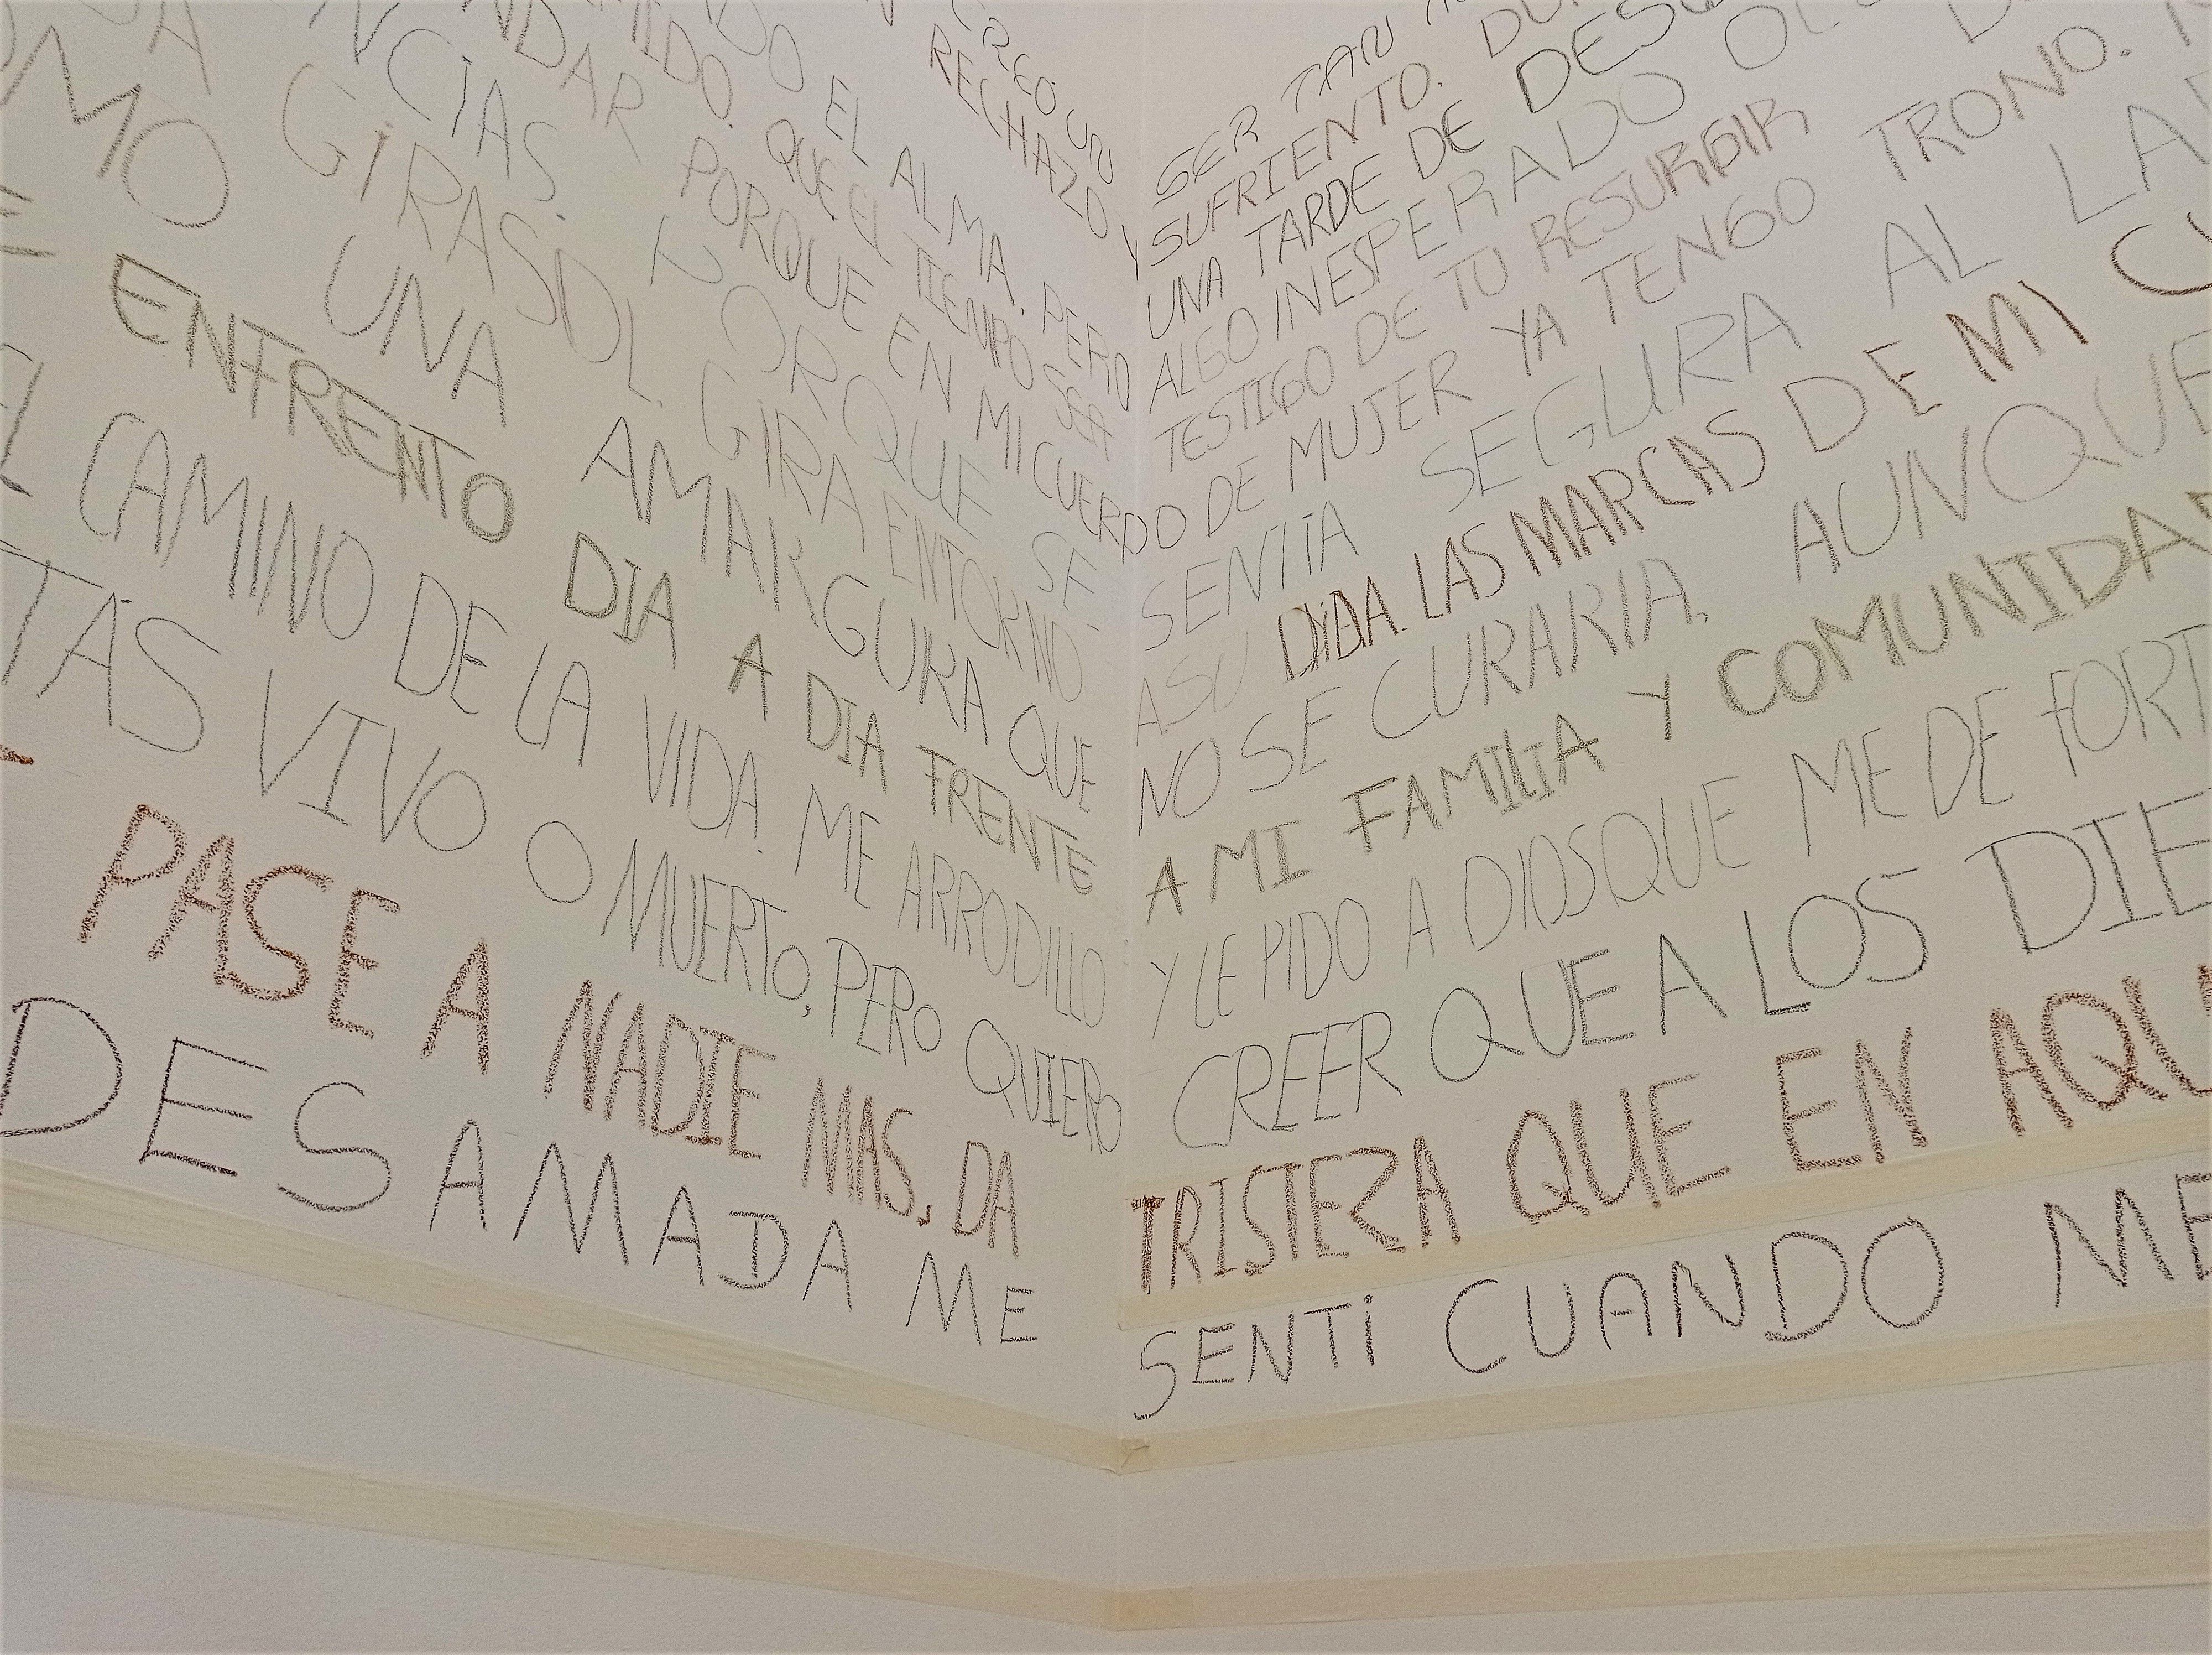 CREO UN SER TAN
RECHAZO Y SUFRIENTO.
UNA TARDE DE
EL ALMA. PERO ALGO INESPERADO
QUE EL TIEMPO SEA TESTIGO DE TU RESURGIR
PORQUE EN MI CUERDO DE MUJER YA TENGO TRONO.
NCIAS. SE SENTIA SEGURA AL LA
GIRASOL GIRA ENTORNO ASU DIDA. LAS MARCAS DE MI
UNA AMARGURA QUE NO SE CURARIA. AUNQUE
ENFRENTO DIA A DIA FRENTE A MI FAMILIA Y COMUNIDA
EL CAMINO DE LA VIDA. ME ARRODILLO Y LE PIDO A DIOS QUE ME DE FORT
TAS VIVO O MUERTO, PERO QUIERO CREER QUE A LOS DIE
PASE A NADIE MAS. DA TRISTEZA QUE EN AQU
DESAMADA ME SENTI CUANDO ME